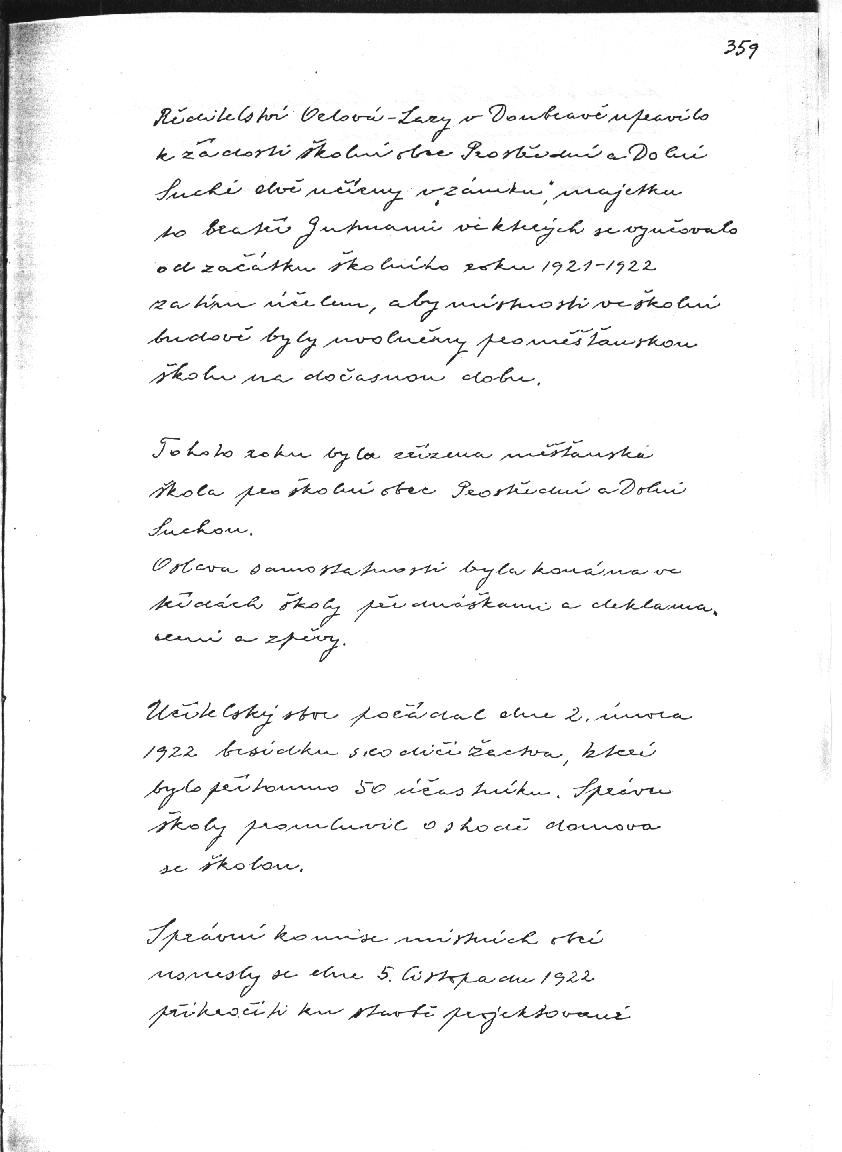 359
Ředitelství Orlová-Lazy v Doubravě upravilo
k žádosti školní obec Prostřední a Dolní
Suché dvě učírny v „zámku“, majetku
to bratří Gutmanů ve kterých se vyučovalo
od začátku školního roku 1921-1922
za tím účelem, aby místnosti ve školní
budově byly uvolněny pro měšťanskou
školu na dočasnou dobu.
Tohoto roku byla zřízena měšťanská
škola pro školní obec Prostřední a Dolní
Suchou.
Oslava samostatnosti byla konána ve
třídách školy přednáškami a deklama-
cemi a zpěvy.
Učitelský sbor pořádal dne 2. února
1922 besídku s rodiči žactva, které
bylo přítomno 50 účastníku. Správce
školy promluvil o shodě domova
se školou.
Správní komise místních obcí
usnesly se dne 5. listopadu 1922
přikročiti ku stavbě projektované